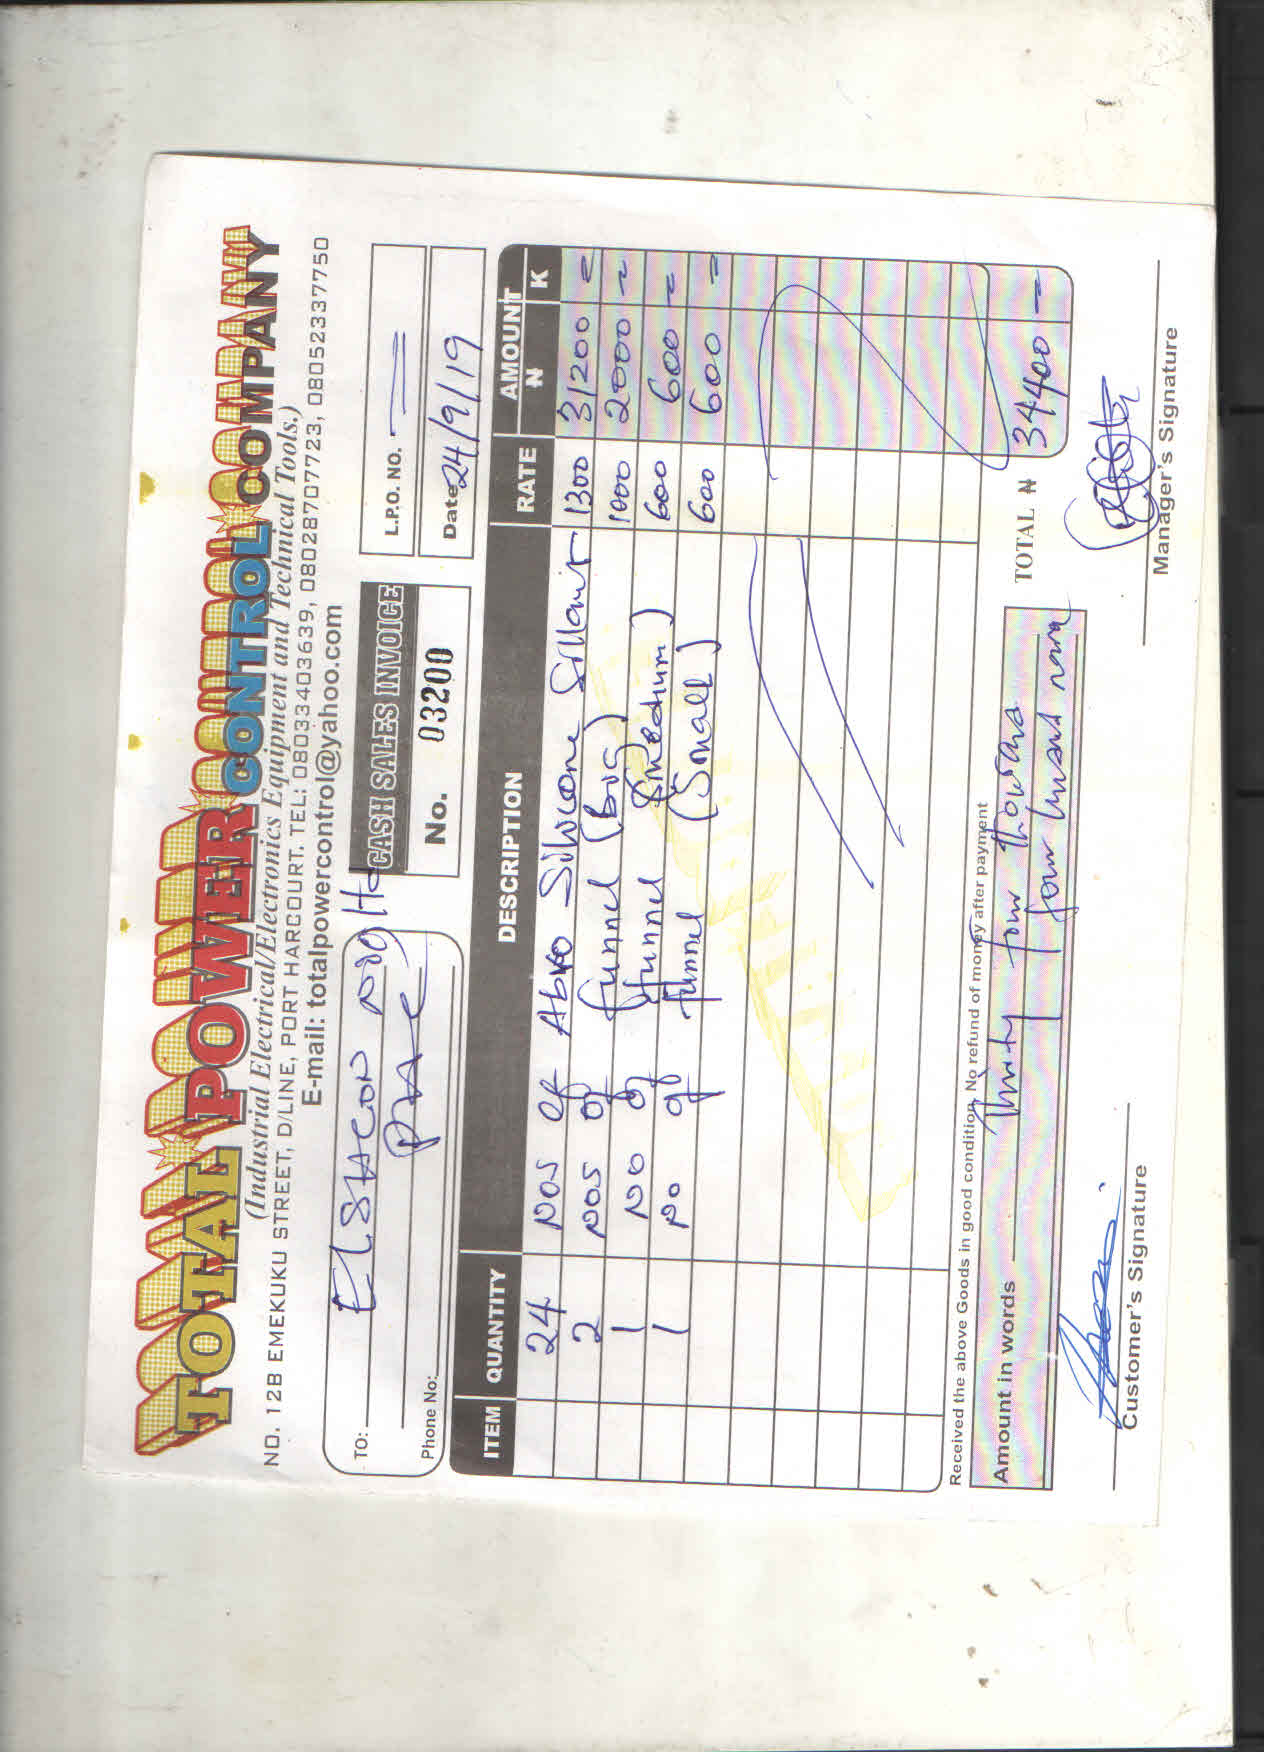 TOTAL POWER CONTROL COMPANY
(Industrial Electrical/Electronics Equipment and Technical Tools.)
NO. 12B EMEKUKU STREET, D/LINE, PORT HARCOURT. TEL: 08033403639, 08028707723, 08052337750
E-mail: totalpowercontrol@yahoo.com
TO:
Phone No: PHC
CASH SALES INVOICE
No. 03200
L.P.O. NO.
Date 24/9/19
ITEM QUANTITY DESCRIPTION RATE AMOUNT
₦ K
24 nos of Abro Silicone Sillant 1300 31200 =
2 nos of funnel (big) 1000 2000 =
1 no of funnel (medium) 600 600 =
1 no of funnel (Small) 600 600 =
Received the above Goods in good condition, No refund of money after payment
TOTAL ₦ 34400 =
Amount in words Thirty four thousand
four hundred naira
Customer's Signature
Manager's Signature